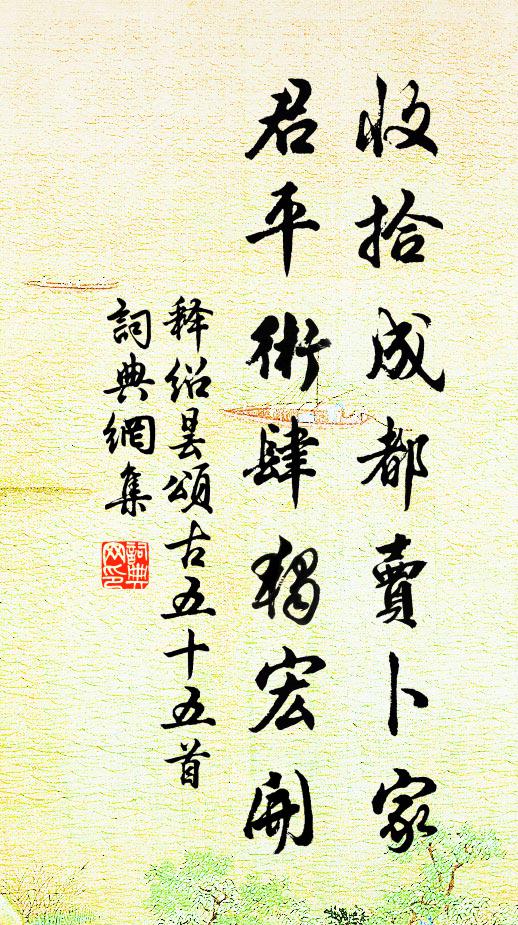 收拾成都賣卜家
君平術肆獨宏開
释绍昙颂古五十五首
詞典網集
詞典网印